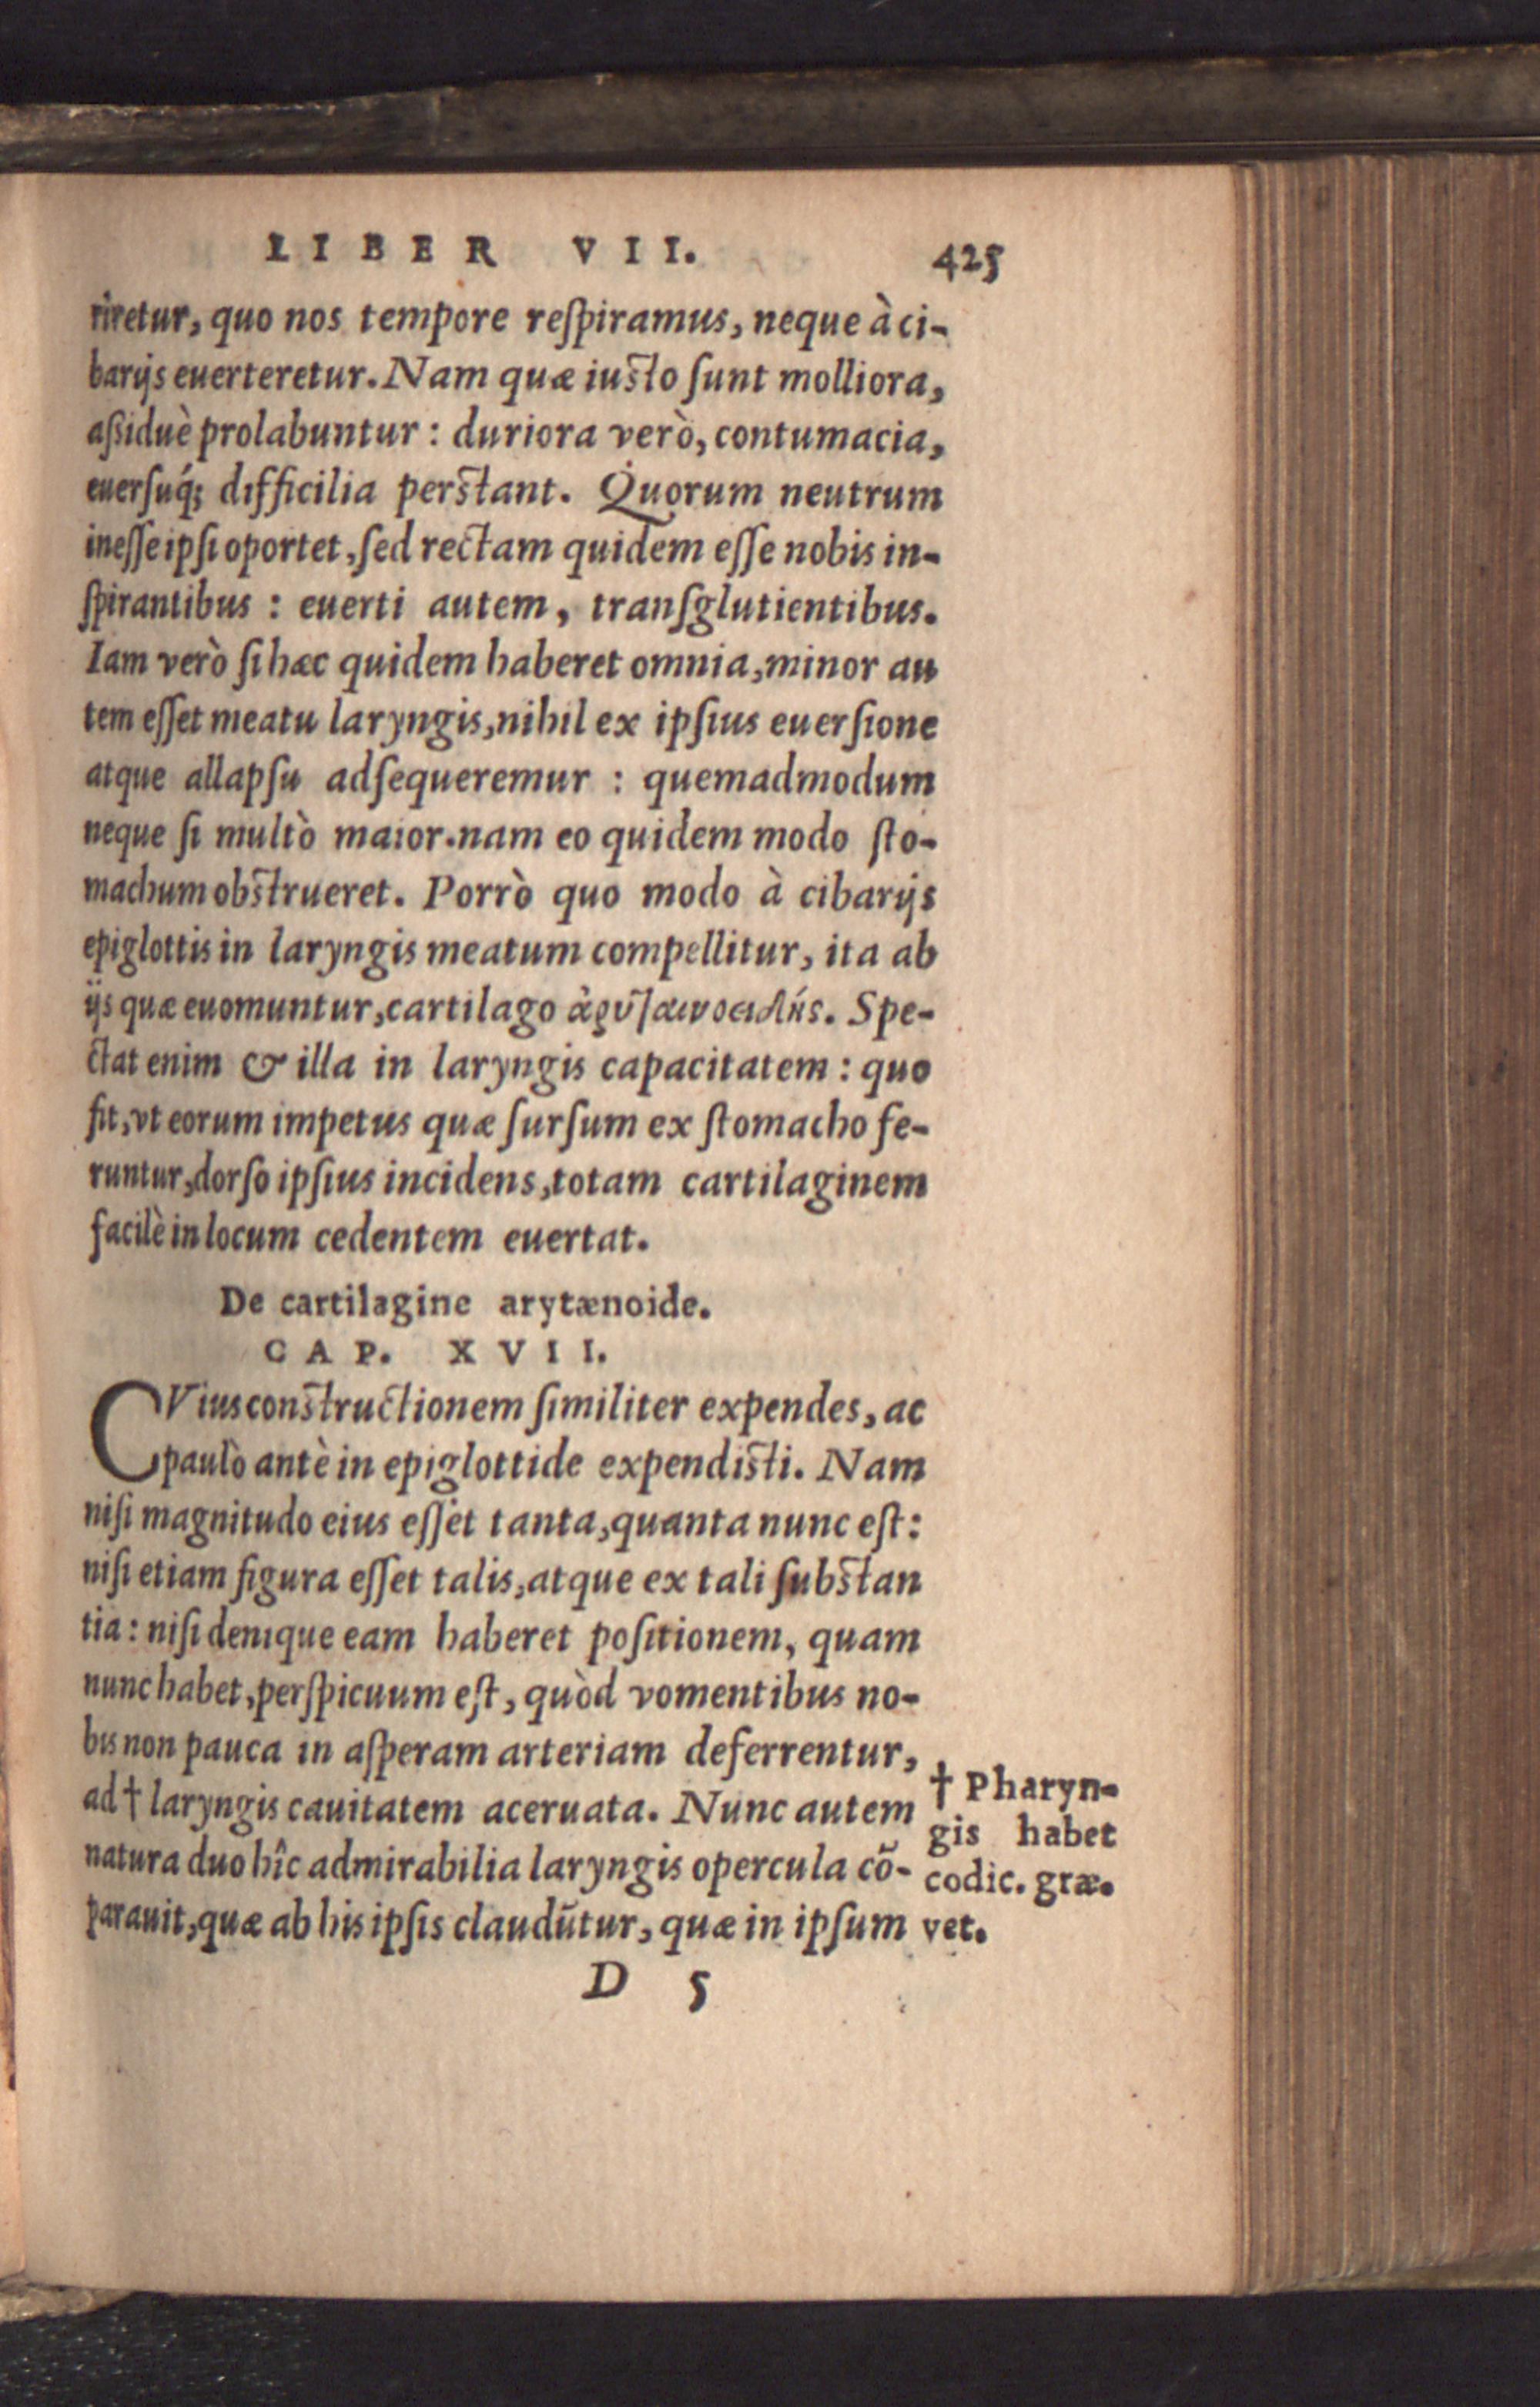 LIBER VII. 425
riretur, quo nos tempore reſpiramus, neque à ci-
barijs euerteretur. Nam quæ iusto ſunt molliora,
aßiduè prolabuntur : duriora verò, contumacia,
euerſuq́; difficilia perstant. Quorum neutrum
ineſſe ipſi oportet, ſed rectam quidem eſſe nobis in-
ſpirantibus : euerti autem, tranſglutientibus.
Iam verò ſi hæc quidem haberet omnia, minor au
tem eſſet meatu laryngis, nihil ex ipſius euerſione
atque allapſu adſequeremur : quemadmodum
neque ſi multò maior. nam eo quidem modo ſto-
machum obstrueret. Porrò quo modo à cibarijs
epiglottis in laryngis meatum compellitur, ita ab
ijs quæ euomuntur, cartilago ἀρυταινοειδὴς. Spe-
ctat enim & illa in laryngis capacitatem : quo
fit, vt eorum impetus quæ ſurſum ex ſtomacho fe-
runtur, dorſo ipſius incidens, totam cartilaginem
facilè in locum cedentem euertat.
De cartilagine arytænoide.
CAP. XVII.
CVius constructionem ſimiliter expendes, ac
paulò antè in epiglottide expendisti. Nam
niſi magnitudo eius eſſet tanta, quanta nunc eſt :
niſi etiam figura eſſet talis, atque ex tali ſubstan
tia : niſi denique eam haberet poſitionem, quam
nunc habet, perſpicuum eſt, quòd vomentibus no-
bis non pauca in aſperam arteriam deferrentur,
ad † laryngis cauitatem aceruata. Nunc autem
natura duo hîc admirabilia laryngis opercula cō-
parauit, quæ ab his ipſis claudūtur, quæ in ipſum
† Pharyn-
gis habet
codic. græ.
vet.
D 5